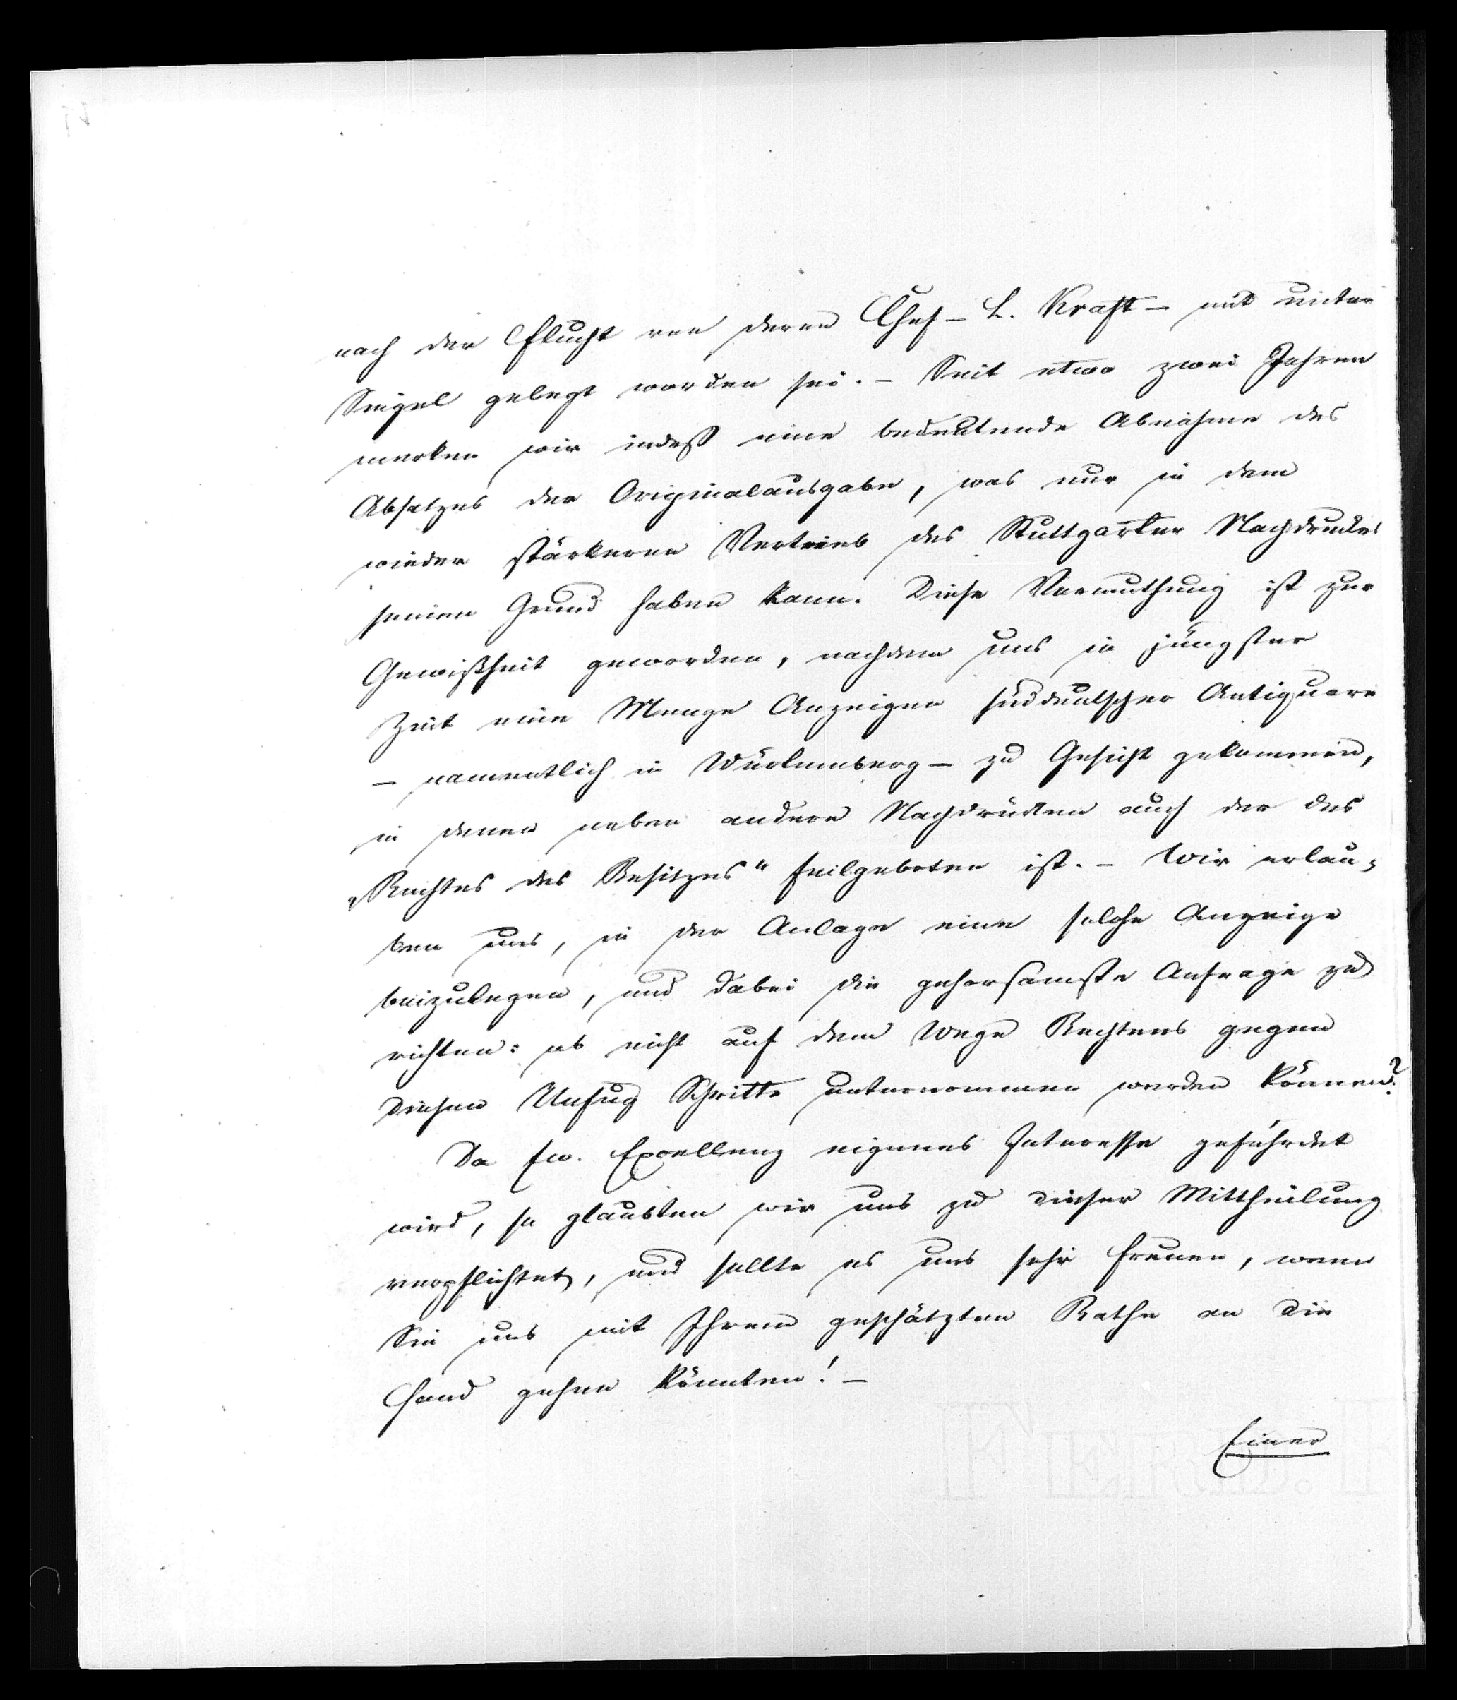 nach der Flucht von deren Chef – L. Kraft – mit unter
Siegel gelegt worden sei. – Seit etwa zwei Jahren
merken wir indeß eine bedeutende Abnahme des
Absatzes der Originalausgabe, was nur in dem
wieder stärkeren Vertrieb des Stuttgarter Nachdruckes
seinen Grund haben kann. Diese Vermuthung ist zur
Gewißheit geworden, nachdem uns in jüngster
Zeit eine Menge Anzeigen süddeutscher Antiquare
– namentlich in Würtemberg – zu Gesicht gekommen,
in denen neben andern Nachdrücken auch der des
„Rechtes des Besitzes" feilgeboten ist. – Wir erlau-
ben uns, in der Anlage eine solche Anzeige
beizulegen, und dabei die gehorsamste Anfrage zu
richten: ob nicht auf dem Wege Rechtens gegen
diesen Unfug Schritte unternommen werden können?
Da Ew. Excellenz eigenes Interesse gefährdet
wird, so glaubten wir uns zu dieser Mittheilung
verpflichtet, und sollte es uns sehr freuen, wenn
Sie uns mit Ihrem geschätzten Rathe an die
Hand gehen könnten! –
Einer